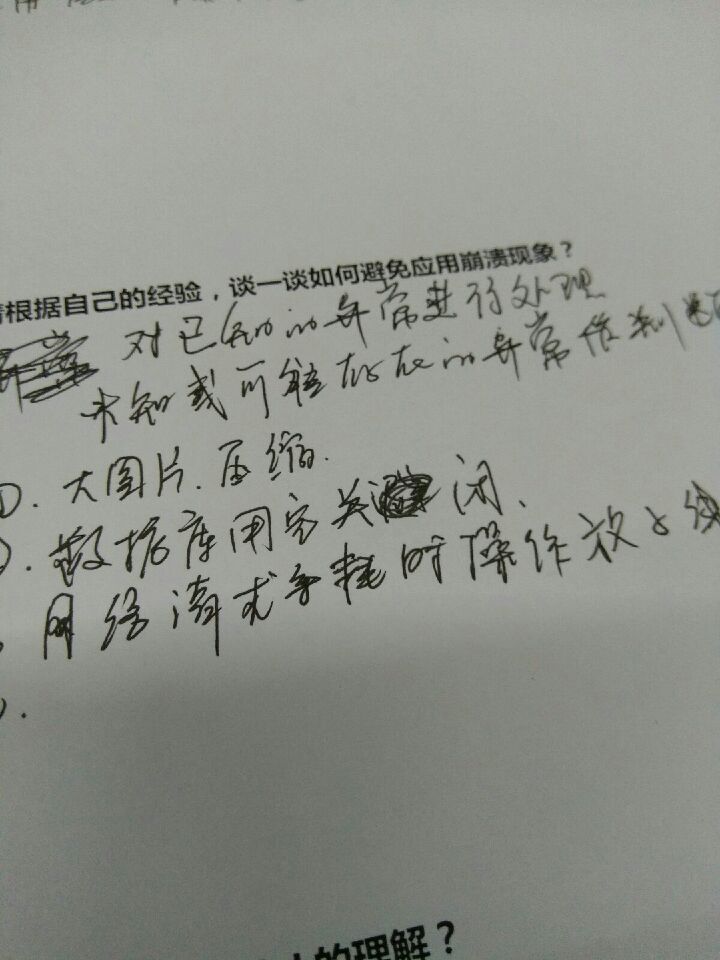 根据自己的经验，谈一谈如何避免应用崩溃现象？
对已知的异常进行处理
未知或可能存在的异常做判
①. 大图片.压缩.
. 数据库用完关闭.
网络请求等耗时操作放子线
).
的理解？